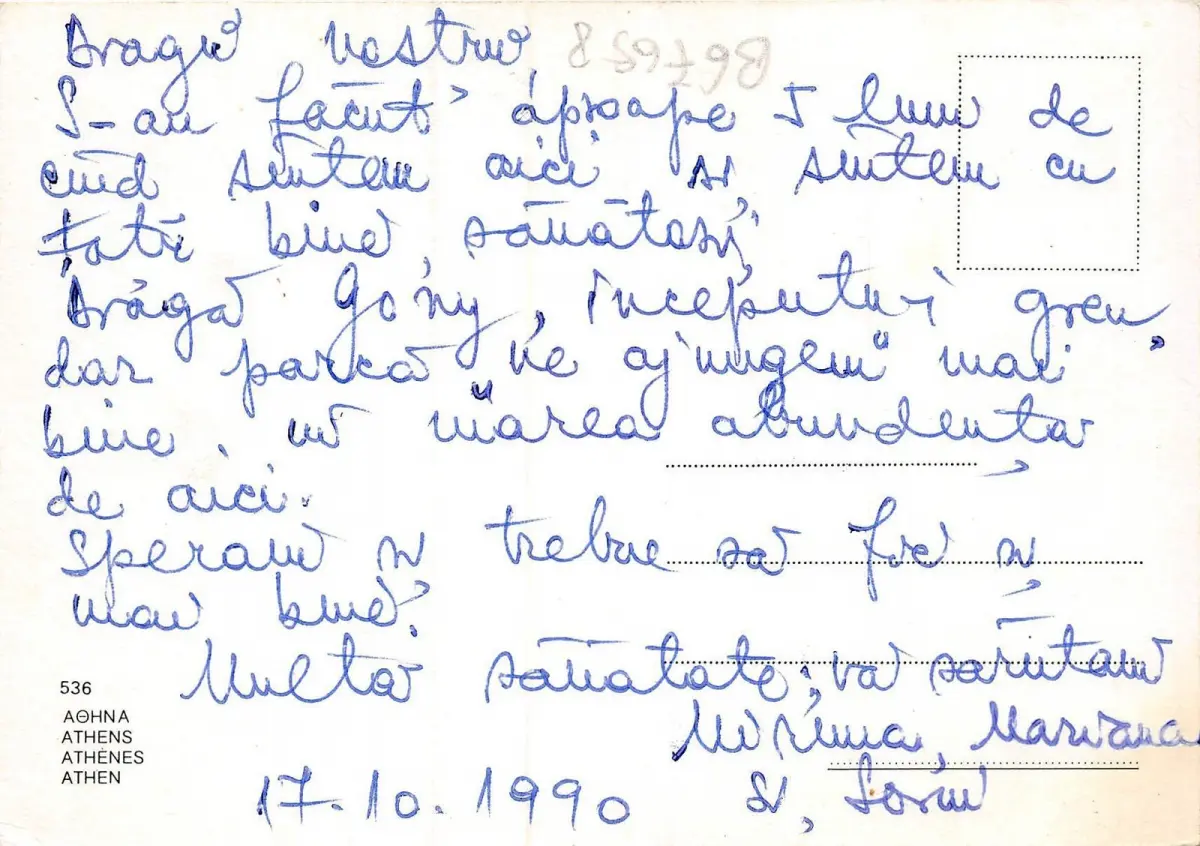 Dragii noștrii
B6F65 8
S-au făcut aproape 5 luni de
cînd sîntem aici și sîntem cu
toții bine, sănătoși;
Dragă Gony, începutu-i greu,
dar parcă "ne ajungem" mai
bine, în marea abundență
de aici.
Sperăm și trebuie să fie și
mai bine!
Multă sănătate; vă sărutăm
Miruna, Mariana
și, Sorin
17.10.1990
536
ΑΘΗΝΑ
ATHENS
ATHÈNES
ATHEN